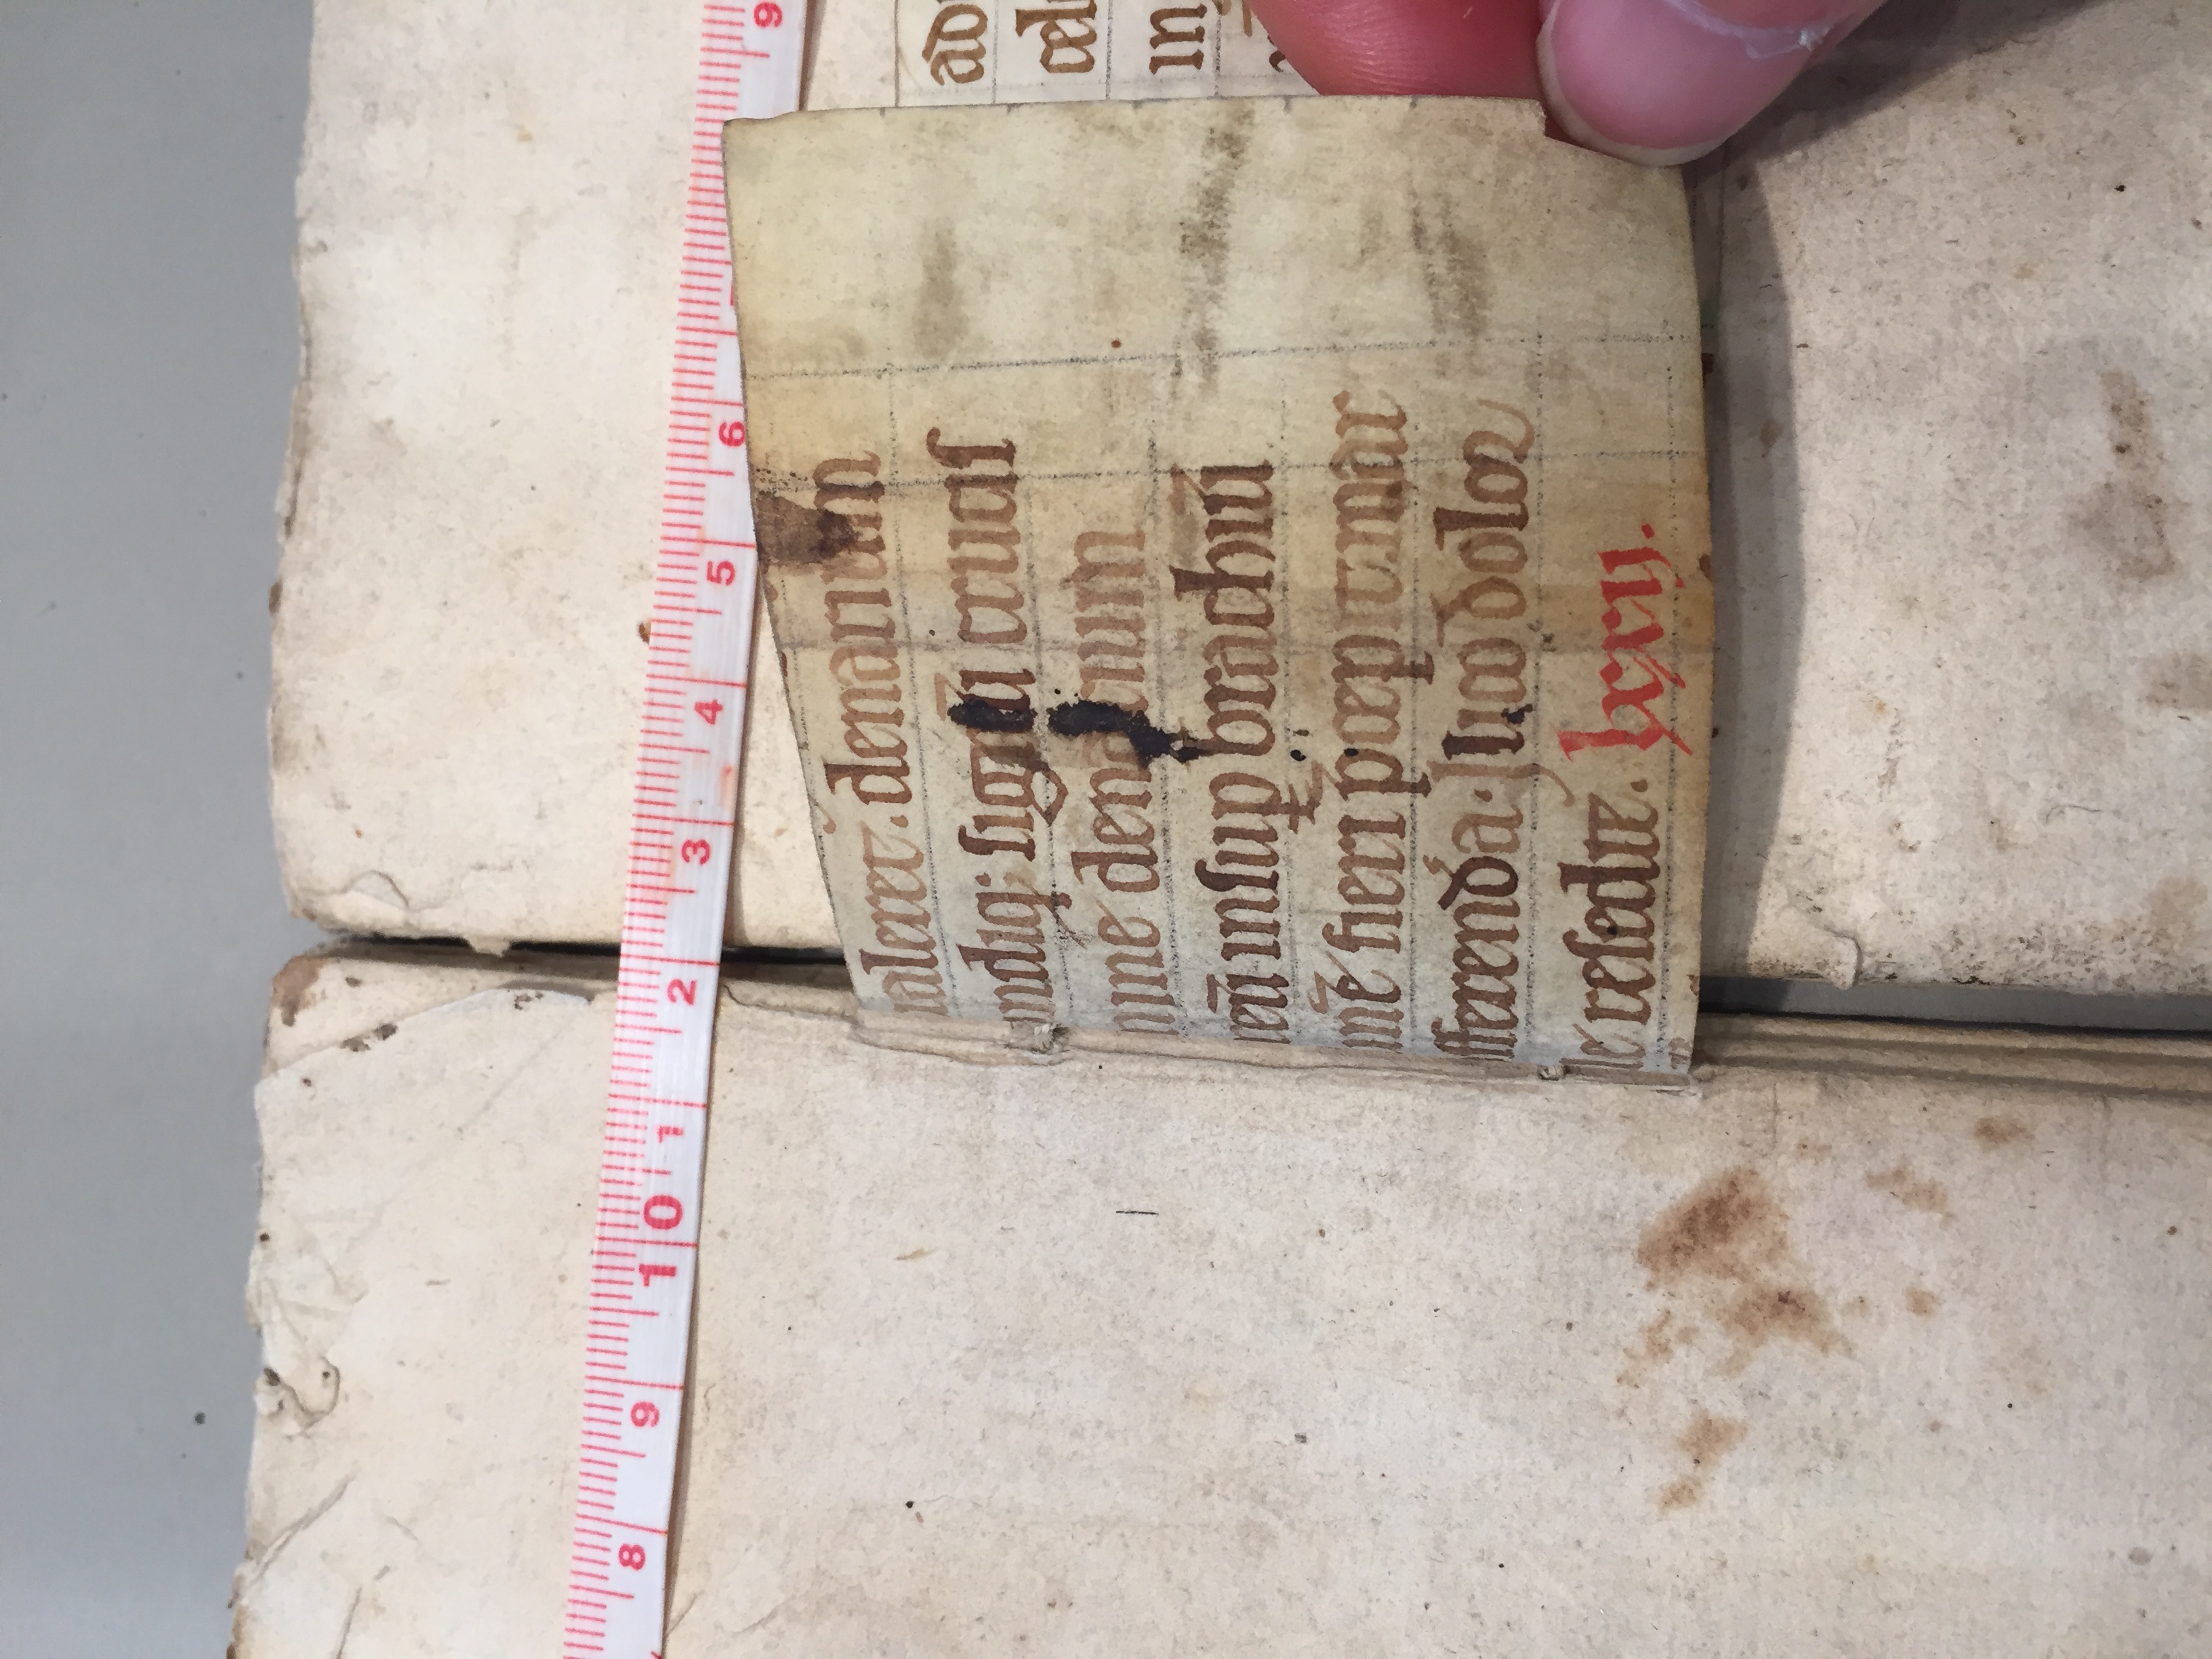 8 9 10 1 2 3 4 5 6 9
ualeret. denarium
undiq; signū crucis
mine denarium
reū insuꝑ brachiū
inē fieri p̄cepit. mar
fferenda. Ilico dolor
le resedit. lxxij.
ad
cel
in